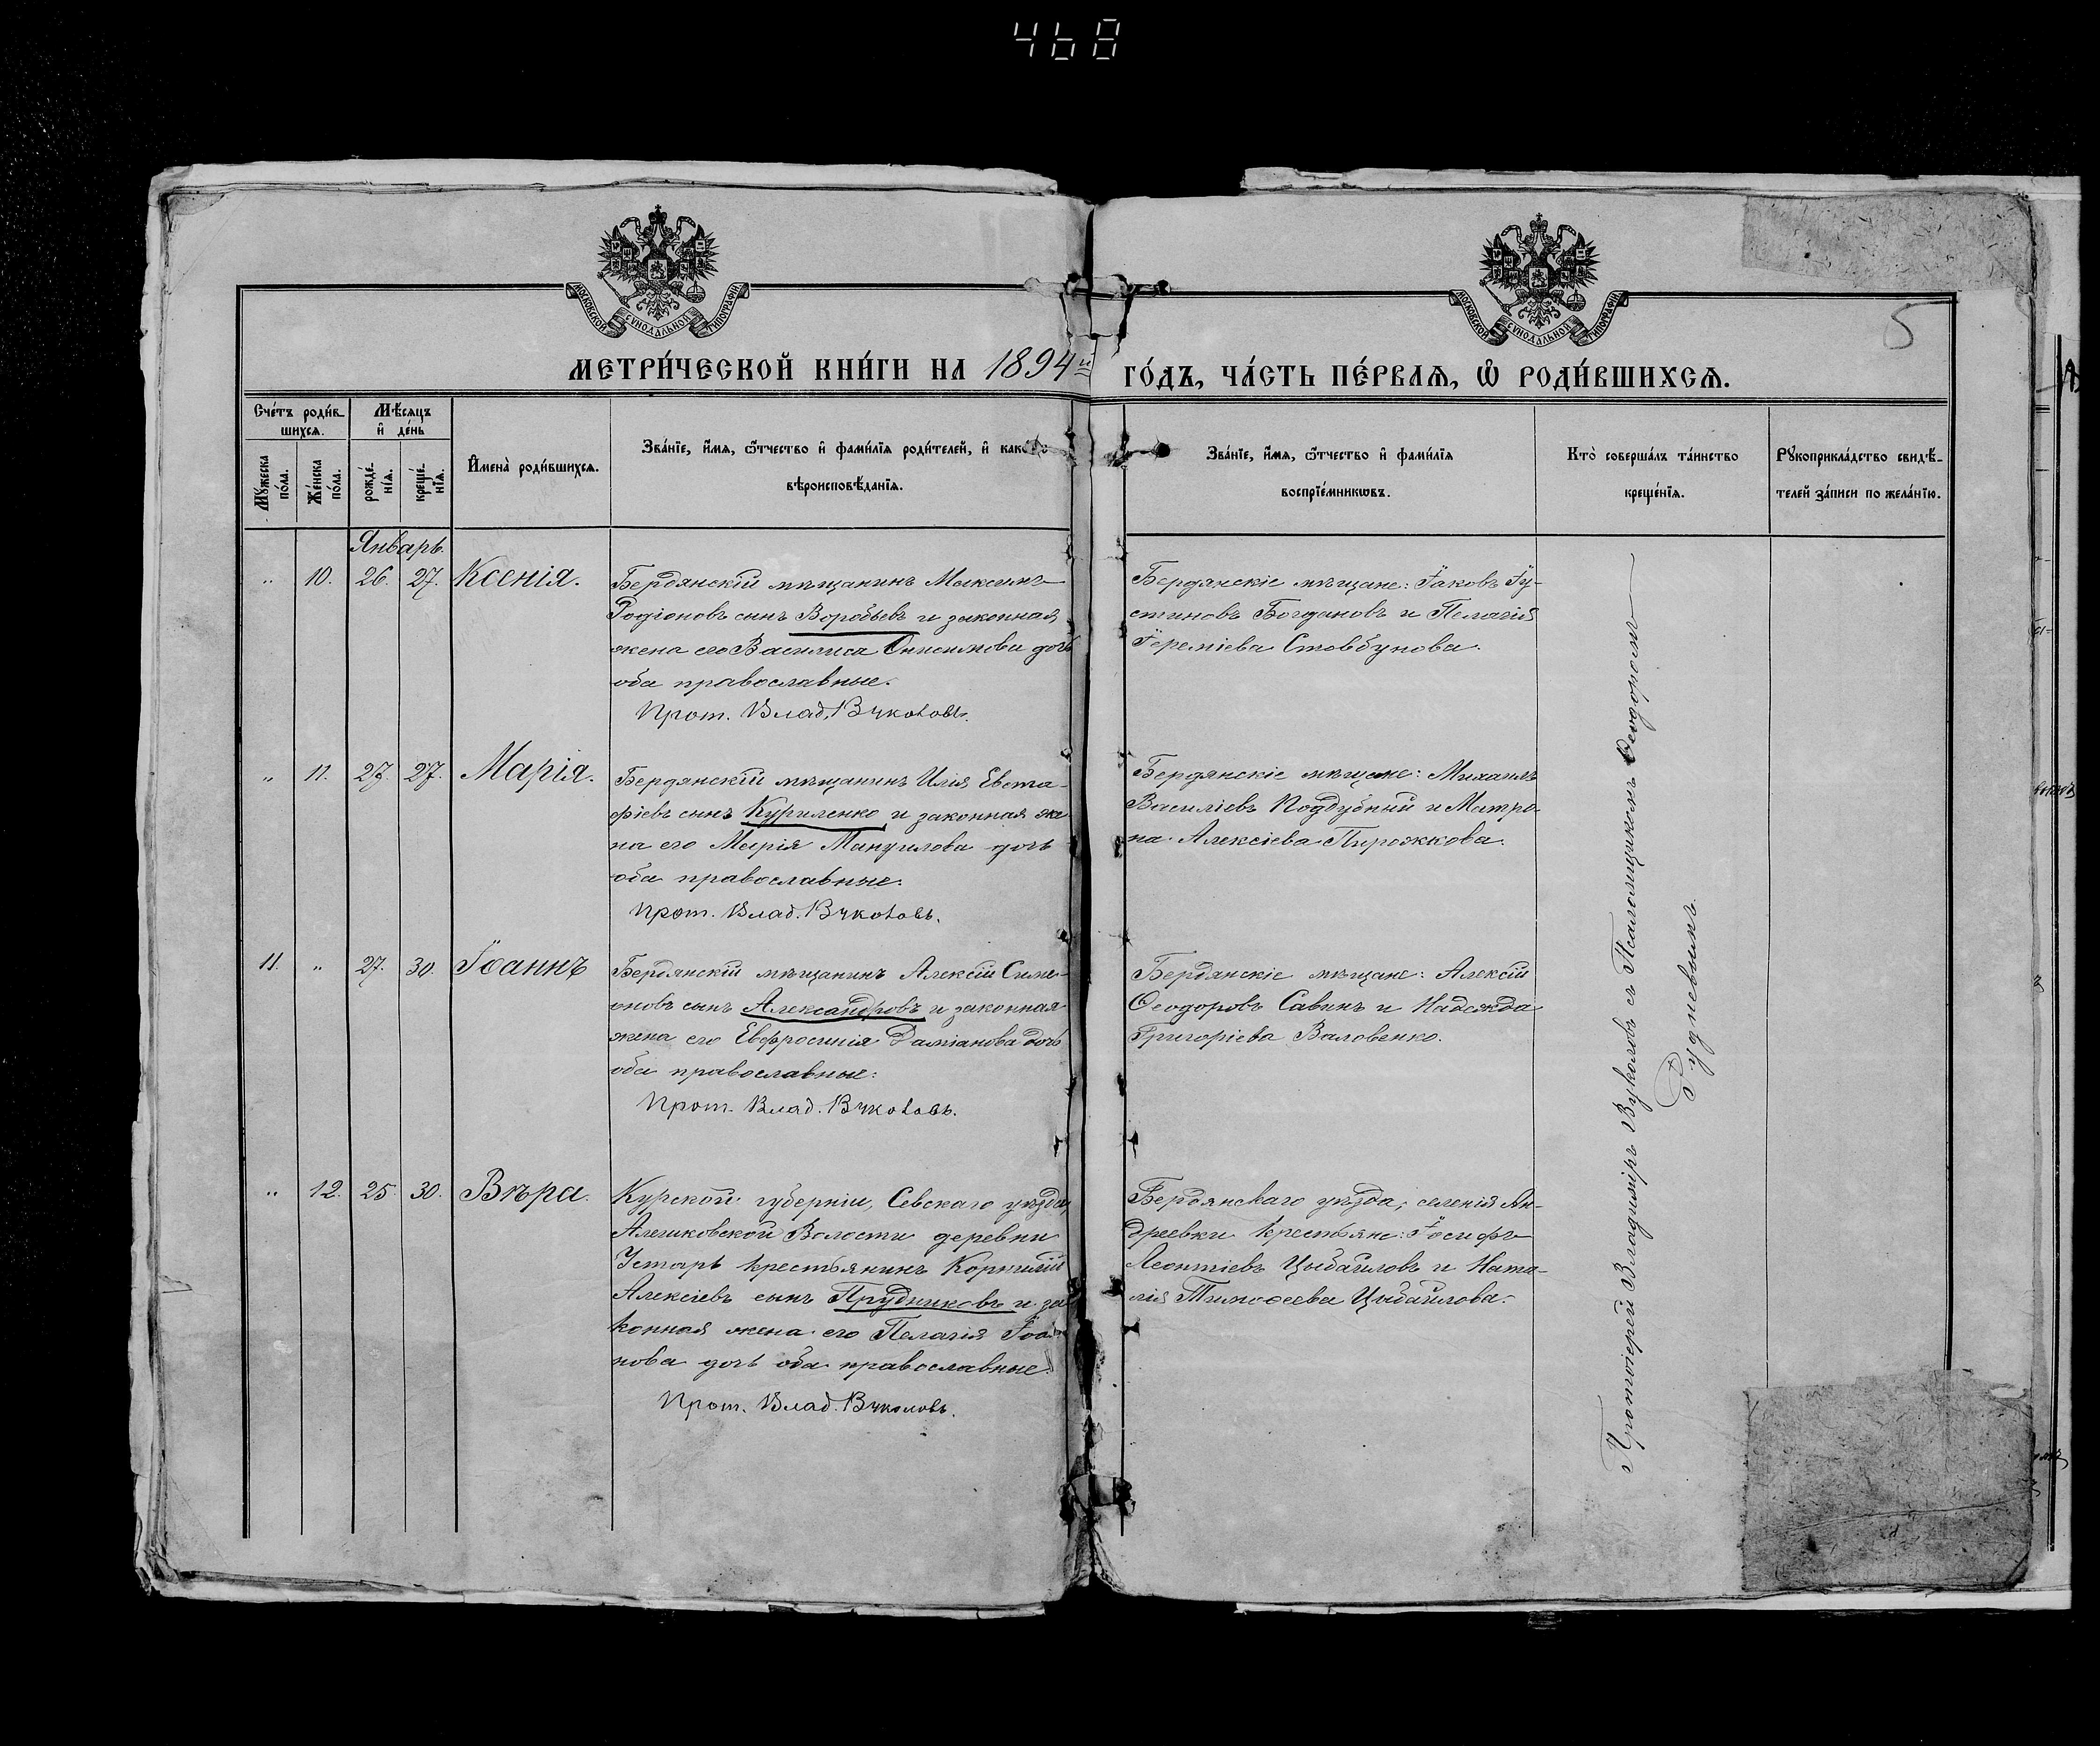 468
МОСКОВСКОЙ СѴНОДАЛЬНОЙ ТИПОГРАФІИ
МОСКОВСКОЙ СѴНОДАЛЬНОЙ ТИПОГРАФІИ
5
МЕТРИ́ЧЕСКОЙ КНИ́ГИ НА 1894й ГО́ДЪ, ЧА́СТЬ ПЕ́РВАѦ, Ѽ РОДИ́ВШИХСѦ.
Сче́тъ роди́в-
шихсѧ.
Мꙋжеска по́ла.
Же́нска по́ла.
Мѣ́сѧцъ
и҆ де́нь
рожде́-
нїѧ.
креще́-
нїѧ.
И҆мена̀ роди́вшихсѧ.
Зва́нїе, и҆́мѧ, ѻ҆́тчество и҆ фами́лїѧ роди́телей, и҆ како́гѡ
вѣроисповѣ́данїѧ.
Зва́нїе, и҆́мѧ, ѻ҆́тчество и҆ фами́лїѧ
воспрїе́мникѡвъ.
Кто̀ соверша́лъ та́инство
креще́нїѧ.
Рꙋкоприкла́дство свидѣ́-
телей за́писи по жела́нїю.
Январь.
" 10. 26. 27. Ксенія.
Бердянскій мѣщанинъ Максимъ
Родіоновъ сынъ Воробьевъ и законная
жена его Василиса Онисимова дочь
оба православные.
Прот. Влад. Вуколовъ.
Бердянскіе мѣщане: Іаковъ Іу-
стиновъ Богдановъ и Пелагія
Іереміева Стовбунова.
" 11. 27. 27. Марія.
Бердянскій мѣщанинъ Илія Евста-
фіевъ сынъ Куриленко и законная же
на его Марія Мануилова дочь
оба православные.
Прот. Влад. Вуколовъ.
Бердянскіе мѣщане: Михаилъ
Василіевъ Поддубный и Матро-
на Алексіева Пирожкова.
11. " 27. 30. Іоаннъ
Бердянскій мѣщанинъ Алексій Симе-
оновъ сынъ Александровъ и законная
жена его Евфросинія Даміанова дочь
оба православные.
Прот. Влад. Вуколовъ.
Бердянскіе мѣщане: Алексій
Ѳеодоровъ Савинъ и Надежда
Григоріева Валовенко.
" 12. 25. 30. Вѣра.
Курской губерніи, Севскаго уѣзда,
Алешковской Волости деревни
Устарь крестьянинъ Корнилій
Алексіевъ сынъ Прудниковъ и за
конная жена его Пелагія Іоан
нова дочь оба православные.
Прот. Влад. Вуколовъ.
Бердянскаго уѣзда, селенія Ан-
дреевки крестьяне: Іосифъ
Леонтіевъ Цыбайловъ и Ната-
лія Тимоѳеева Цыбайлова.
Протоіерей Владиміръ Вуколовъ съ Псаломщикомъ Ѳеодоромъ
Рудневымъ.